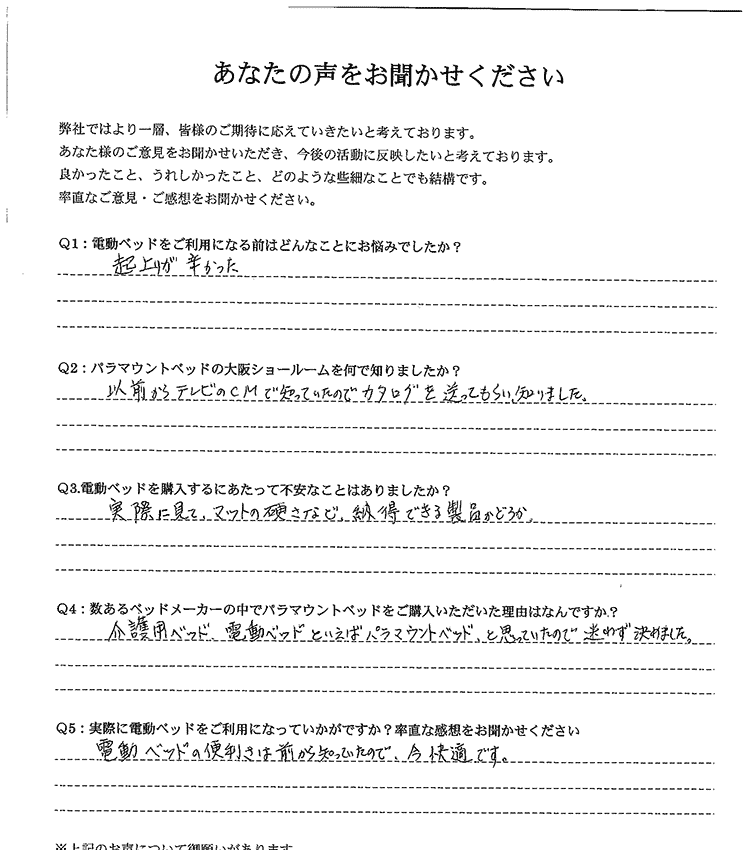 あなたの声をお聞かせください
弊社ではより一層、皆様のご期待に応えていきたいと考えております。
あなた様のご意見をお聞かせいただき、今後の活動に反映したいと考えております。
良かったこと、うれしかったこと、どのような些細なことでも結構です。
率直なご意見・ご感想をお聞かせください。
Q1：電動ベッドをご利用になる前はどんなことにお悩みでしたか？
起上りが辛かった
Q2：パラマウントベッドの大阪ショールームを何で知りましたか？
以前からテレビのCMで知っていたのでカタログを送ってもらい、知りました。
Q3.電動ベッドを購入するにあたって不安なことはありましたか？
実際に見て、マットの硬さなど、納得できる製品かどうか。
Q4：数あるベッドメーカーの中でパラマウントベッドをご購入いただいた理由はなんですか？
介護用ベッド、電動ベッドといえばパラマウントベッド、と思っていたので迷わず決めました。
Q5：実際に電動ベッドをご利用になっていかがですか？率直な感想をお聞かせください
電動ベッドの便利さは前から知っていたので、今快適です。
※上記のお声について御願いがあります